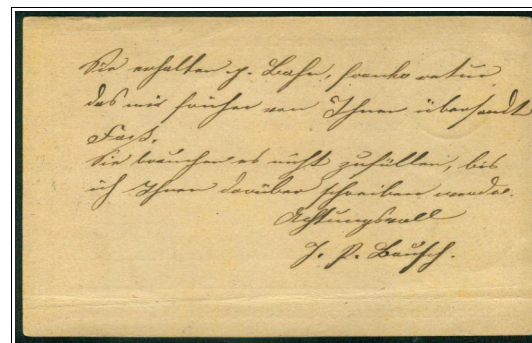 Sie erhalten p. Bahn, franko retur
das mir früher von Ihnen übersandt
Fass.
Sie brauchen es nicht zufüllen, bis
ich Ihnen darüber schreiben werde.
Achtungsvoll
J. P. Bausch.